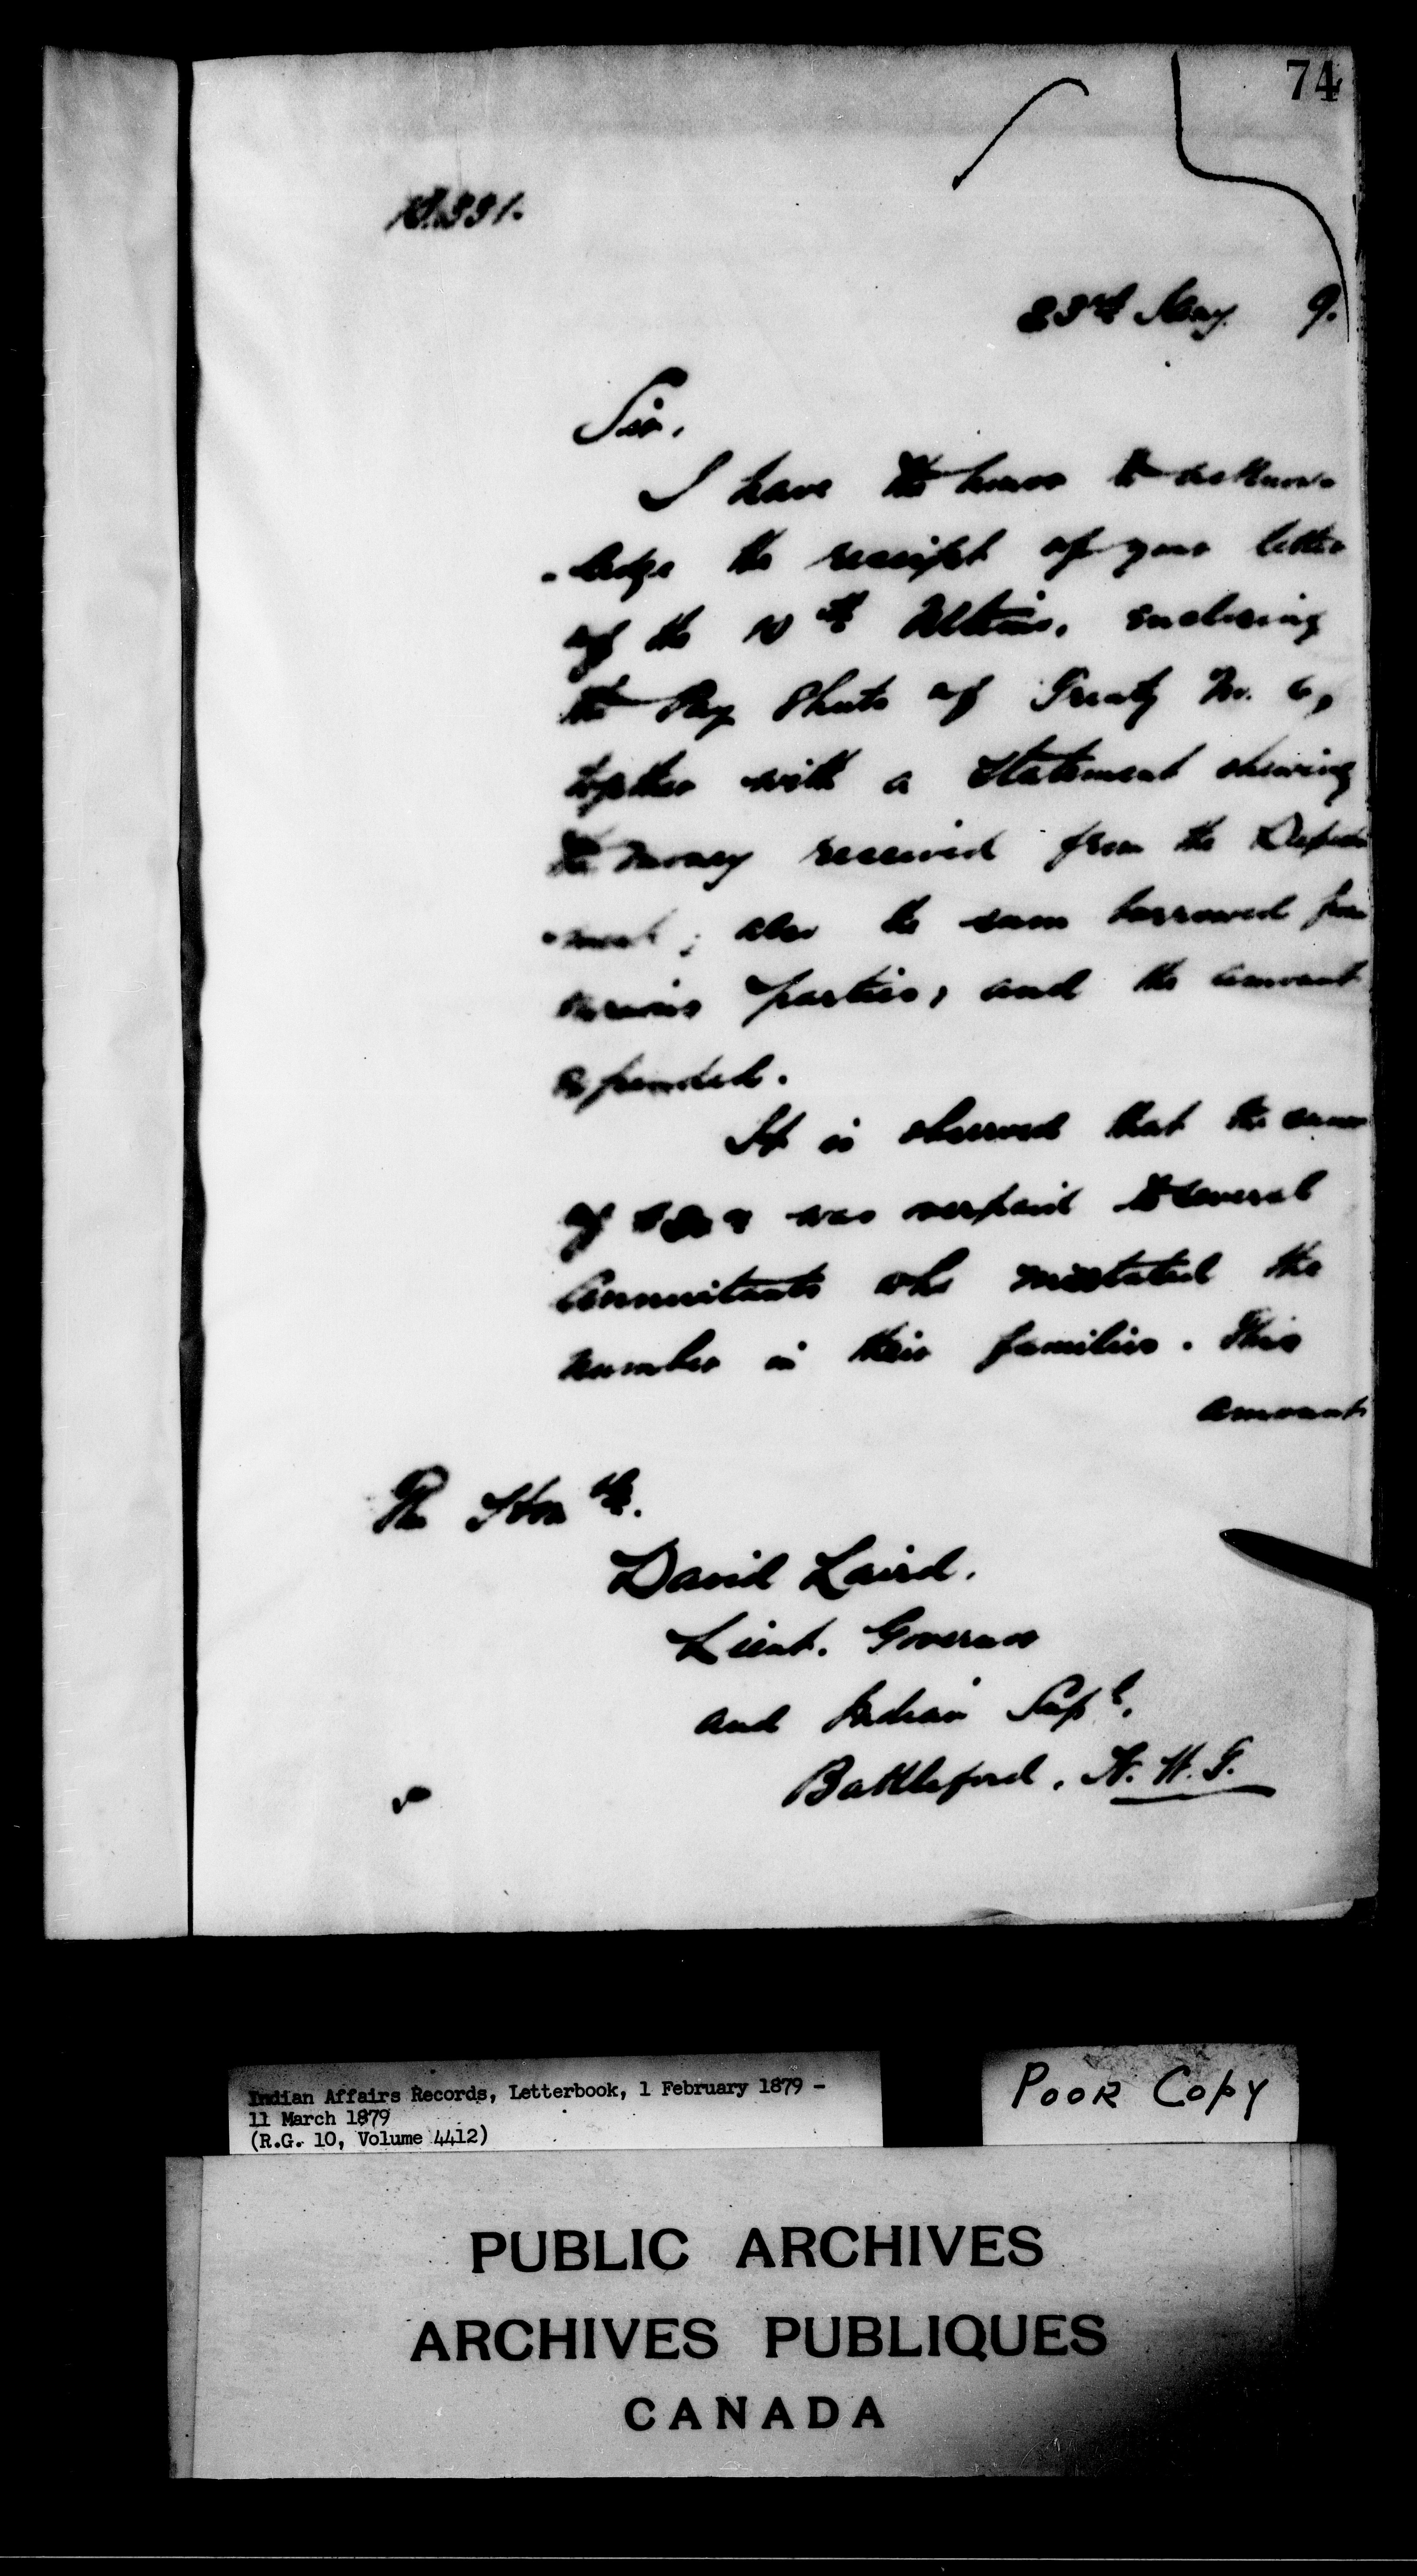 74
23rd May 9.
Sir,
I have the honor to acknow-
-ledge the receipt of your letter
of the 10th Ultimo, enclosing
the Pay Sheets of Treaty No. 6,
together with a Statement shewing
the money received from the Depart
-ment; also the sum borrowed from
various parties, and the amount
expended.
It is observed that the sum
of was overpaid to several
Annuitants who misstated the
number in their families. This
amount
The Honble.
David Laird,
Lieut. Governor
and Indian Supt.
Battleford, N. W. T.
Indian Affairs Records, Letterbook, 1 February 1879 -
11 March 1879
(R.G. 10, Volume 4412)
POOR COPY
PUBLIC ARCHIVES
ARCHIVES PUBLIQUES
CANADA